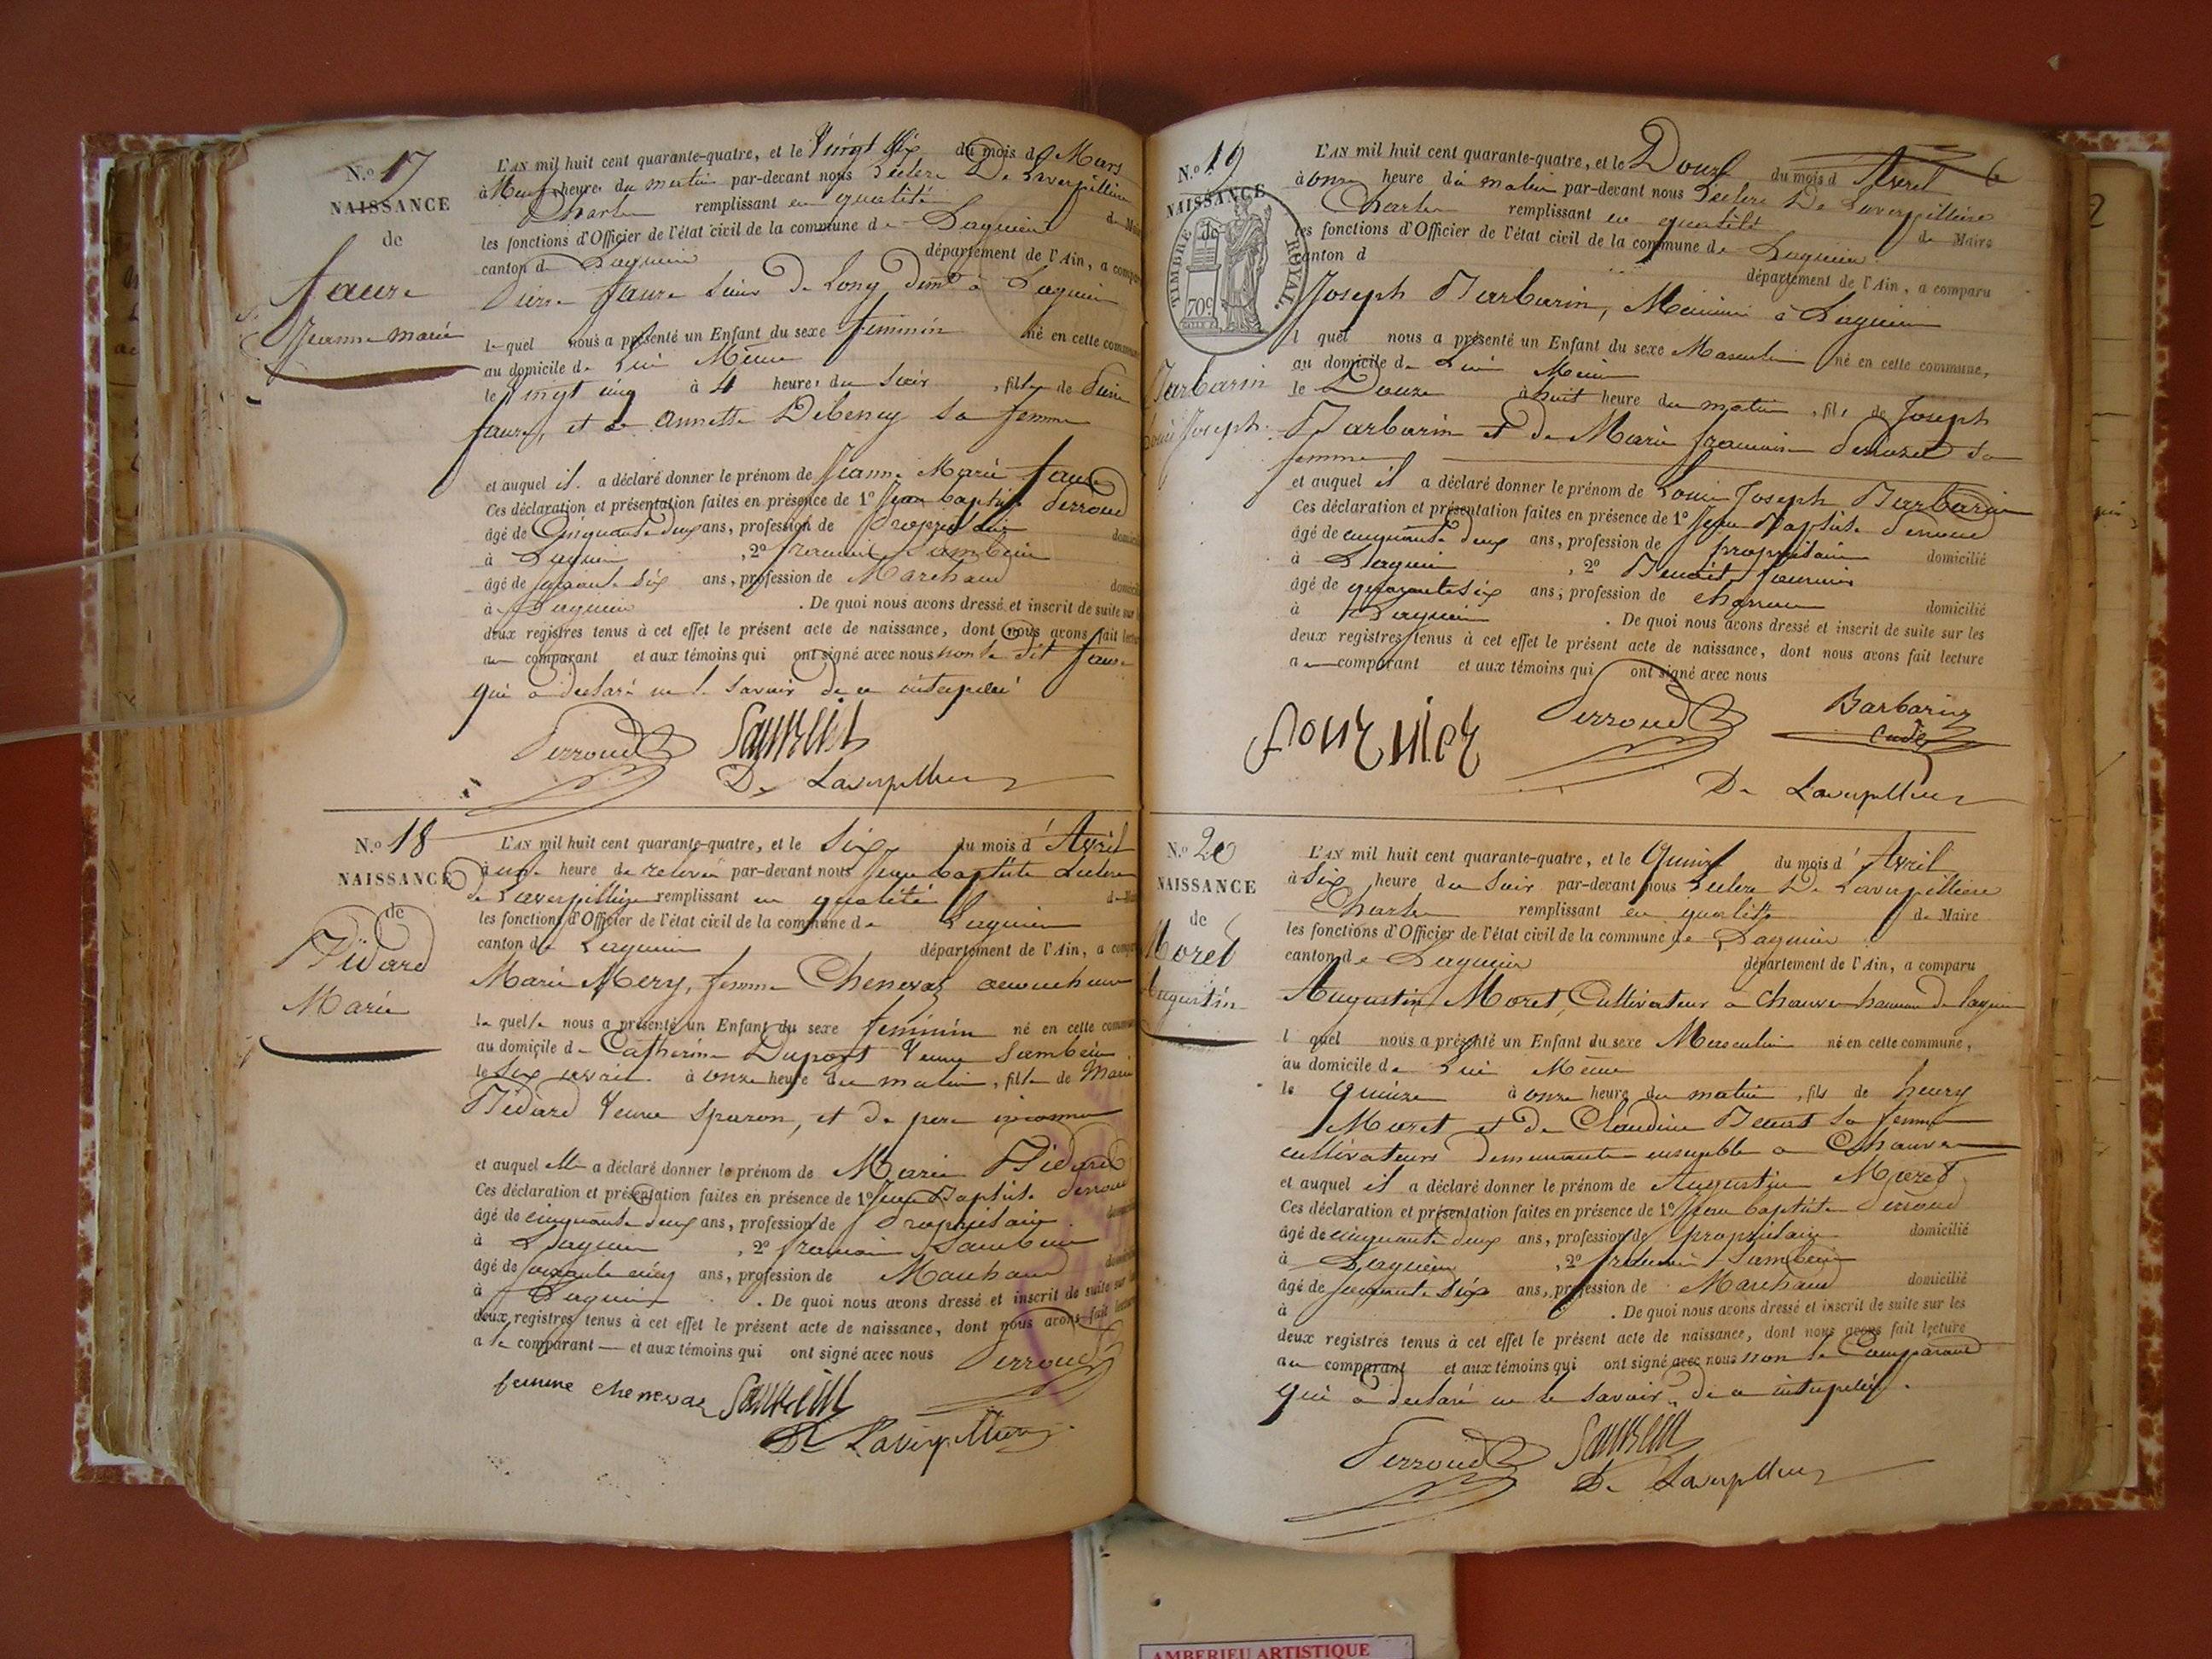 N.o 17
NAISSANCE
de
faure
Jeanne marie
L'AN mil huit cent quarante-quatre, et le Vingt Six du mois de Mars
à Neuf heures du matin par-devant nous Leclerc De Laverpilliere
Charles remplissant en qualité de Maire
les fonctions d'Officier de l'état civil de la commune de Lagnieu
canton de Lagnieu département de l'Ain, a comparu
Pierre faure Scieur De Long demt à Lagnieu
lequel nous a présenté un Enfant du sexe feminin né en cette commune
au domicile de Lui Même
le Vingt cinq à 4 heures du Soir, fille de Pierre
faure, et de annette Debeney Sa femme
et auquel il a déclaré donner le prénom de Jeanne Marie faure
Ces déclaration et présentation faites en présence de 1o Jean baptiste Perroud
âgé de Cinquante deux ans, profession de Propriétaire
à Lagnieu, 2o
âgé de ans, profession de Marchand
à Lagnieu. De quoi nous avons dressé et inscrit de suite sur
deux registres tenus à cet effet le présent acte de naissance, dont nous avons fait lecture
au comparant et aux témoins qui ont signé avec nous non le dit faure
qui a déclaré ne le savoir de ce interpelé
Perroud
De Laverpilliere
N.o 18
NAISSANCE
de
Bidard
Marie
L'AN mil huit cent quarante-quatre, et le Six du mois d'Avril
à une heure de relevée par-devant nous Jean baptiste Leclerc
de Laverpilliere remplissant en qualité
les fonctions d'Officier de l'état civil de la commune de Lagnieu
canton de Lagnieu département de l'Ain, a comparu
Marie Mery, femme Chenevaz accoucheuse
laquelle nous a présenté un Enfant du sexe feminin né en cette commune
au domicile de Catherine Duport Veuve
le Six avril à onze heure du matin, fille de Marie
Bidard Veuve Sparon, et de pere inconnu
et auquel elle a déclaré donner le prénom de Marie Bidard
Ces déclaration et présentation faites en présence de 1o Jean Baptiste Perroud
âgé de cinquante deux ans, profession de Propriétaire
à Lagnieu, 2o
âgé de ans, profession de Marchand
à Lagnieu. De quoi nous avons dressé et inscrit de suite sur
deux registres tenus à cet effet le présent acte de naissance, dont nous avons fait lecture
a la comparant et aux témoins qui ont signé avec nous Perroud
femme chenevaz
De Laverpilliere
N.o 19
NAISSANCE
de
TIMBRE ROYAL.
70c
Barbarin
Louis Joseph
6
L'AN mil huit cent quarante-quatre, et le Douze du mois d'Avril
à onze heure du matin par-devant nous Leclerc De Laverpilliere
Charles remplissant en qualité de Maire
les fonctions d'Officier de l'état civil de la commune de Lagnieu
canton d département de l'Ain, a comparu
Joseph Barbarin, à Lagnieu
l quel nous a présenté un Enfant du sexe Masculin né en cette commune,
au domicile de Lui Même
le Douze à huit heure du matin, fils de Joseph
Barbarin et de Marie françoise Sa
femme
et auquel il a déclaré donner le prénom de Louis Joseph Barbarin
Ces déclaration et présentation faites en présence de 1o Jean Baptiste Perroud
âgé de cinquante deux ans, profession de propriétaire domicilié
à Lagnieu, 2o Benoit fournier
âgé de quarante six ans, profession de charron domicilié
à Lagnieu. De quoi nous avons dressé et inscrit de suite sur les
deux registres tenus à cet effet le présent acte de naissance, dont nous avons fait lecture
au comparant et aux témoins qui ont signé avec nous
fournier Perroud Barbarin
Cadet
De Laverpilliere
N.o 20
NAISSANCE
de
Moret
Augustin
L'AN mil huit cent quarante-quatre, et le Quinze du mois d'Avril
à Six heure du Soir par-devant nous Leclerc De Laverpilliere
Charles remplissant en qualité de Maire
les fonctions d'Officier de l'état civil de la commune de Lagnieu
canton de Lagnieu département de l'Ain, a comparu
Augustin Moret, Cultivateur a hameau de lagnieu
l quel nous a présenté un Enfant du sexe Masculin né en cette commune,
au domicile de Lui Même
le quinze à onze heure du matin, fils de henry
Moret et de Claudine Sa femme
cultivateurs demeurants ensemble a
et auquel il a déclaré donner le prénom de Augustin Moret
Ces déclaration et présentation faites en présence de 1o Jean baptiste Perroud
âgé de cinquante deux ans, profession de propriétaire domicilié
à Lagnieu, 2o
âgé de ans, profession de Marchand domicilié
à . De quoi nous avons dressé et inscrit de suite sur les
deux registres tenus à cet effet le présent acte de naissance, dont nous avons fait lecture
au comparant et aux témoins qui ont signé avec nous non le Comparant
qui a déclaré ne le savoir de ce interpelé.
Perroud
De Laverpilliere
AMBERIEU ARTISTIQUE